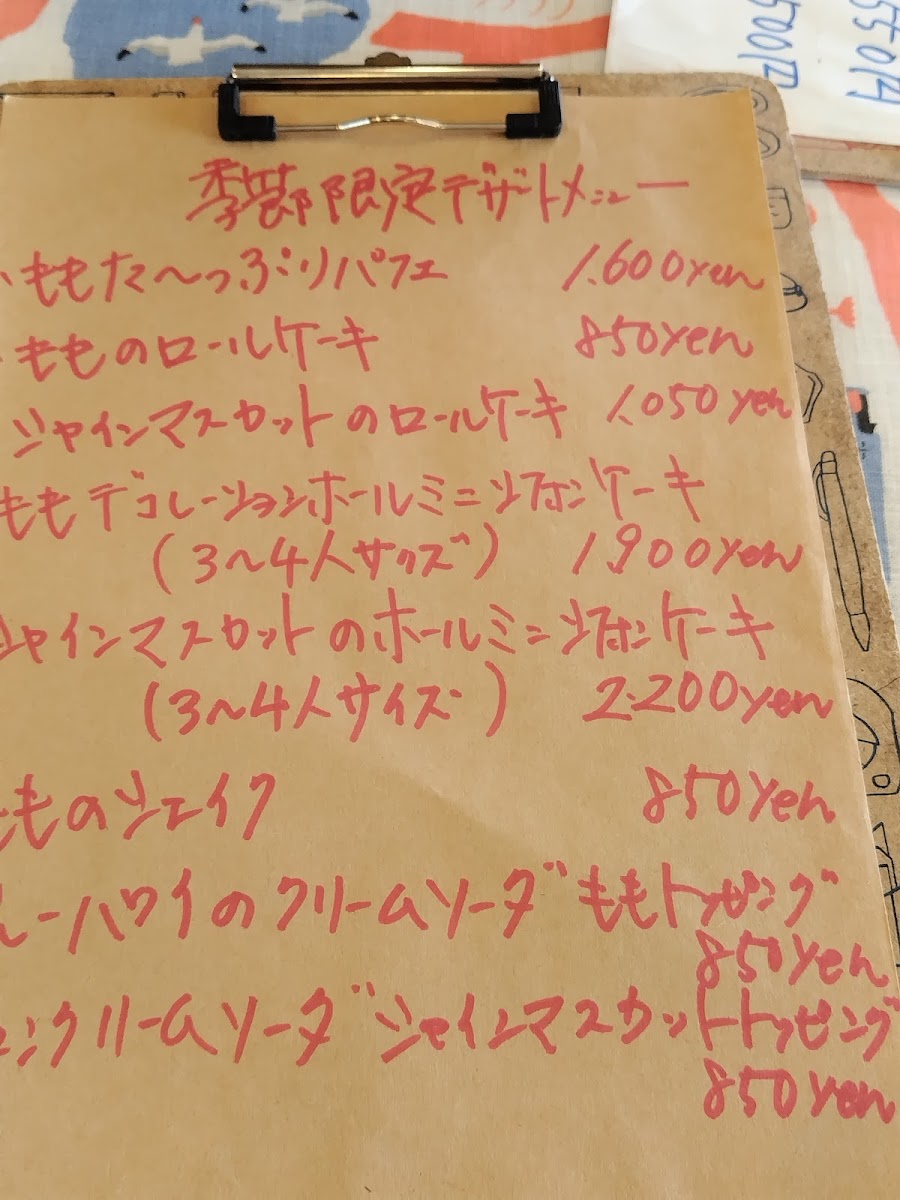 季節限定デザートメニュー
ももた〜っぷりパフェ 1.600yen
もものロールケーキ 850yen
シャインマスカットのロールケーキ 1.050yen
ももデコレーションホールミニシフォンケーキ
(3〜4人サイズ) 1.900yen
シャインマスカットのホールミニシフォンケーキ
(3〜4人サイズ) 2.200yen
もものシェイク 850yen
ルーハワイのクリームソーダももトッピング
850yen
ンクリームソーダシャインマスカットトッピング
850yen
550円
500円